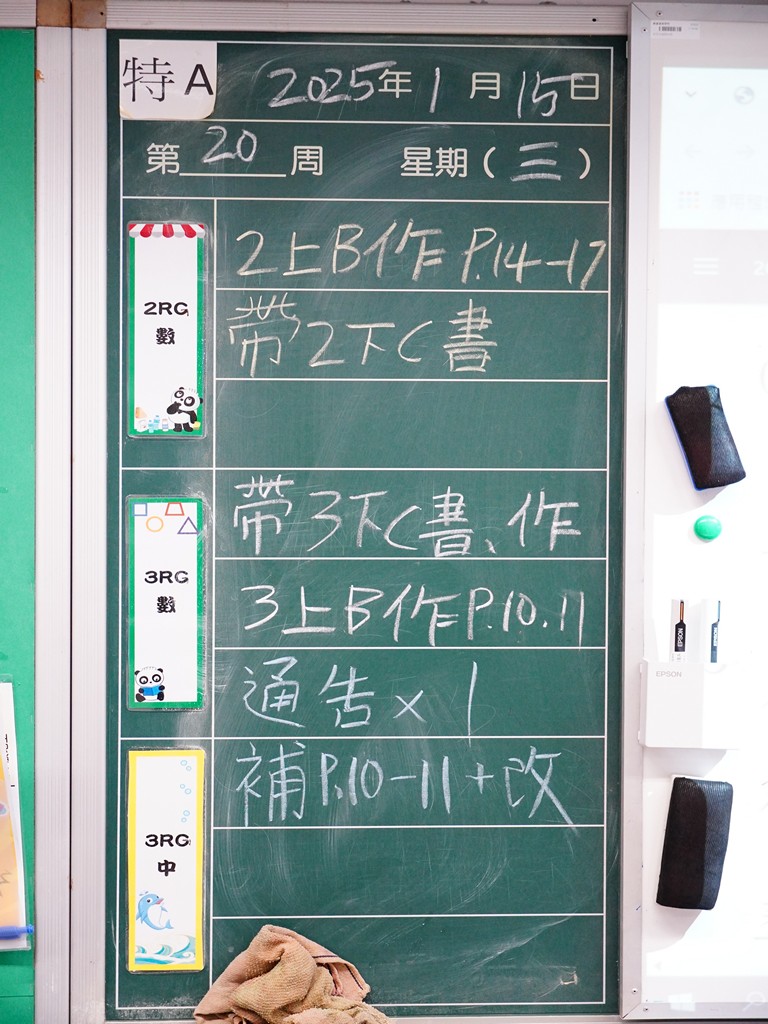 特A
2025年1月15日
第20周 星期(三)
2RG
數
2上B作P.14-17
帶2下C書
3RG
數
帶3下C書、作
3上B作P.10.11
通告×1
3RG
中
補P.10-11+改
EPSON
EPSON
EPSON